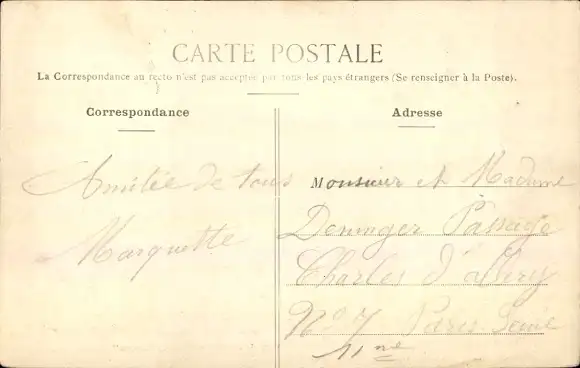 CARTE POSTALE
La Correspondance au recto n'est pas acceptée par tous les pays étrangers (Se renseigner à la Poste).
Correspondance
Amitiée de tous
Marquette
Adresse
Monsieur et Madame
Deninger Passage
Charles d'allery
No 7 Paris Seine
11me